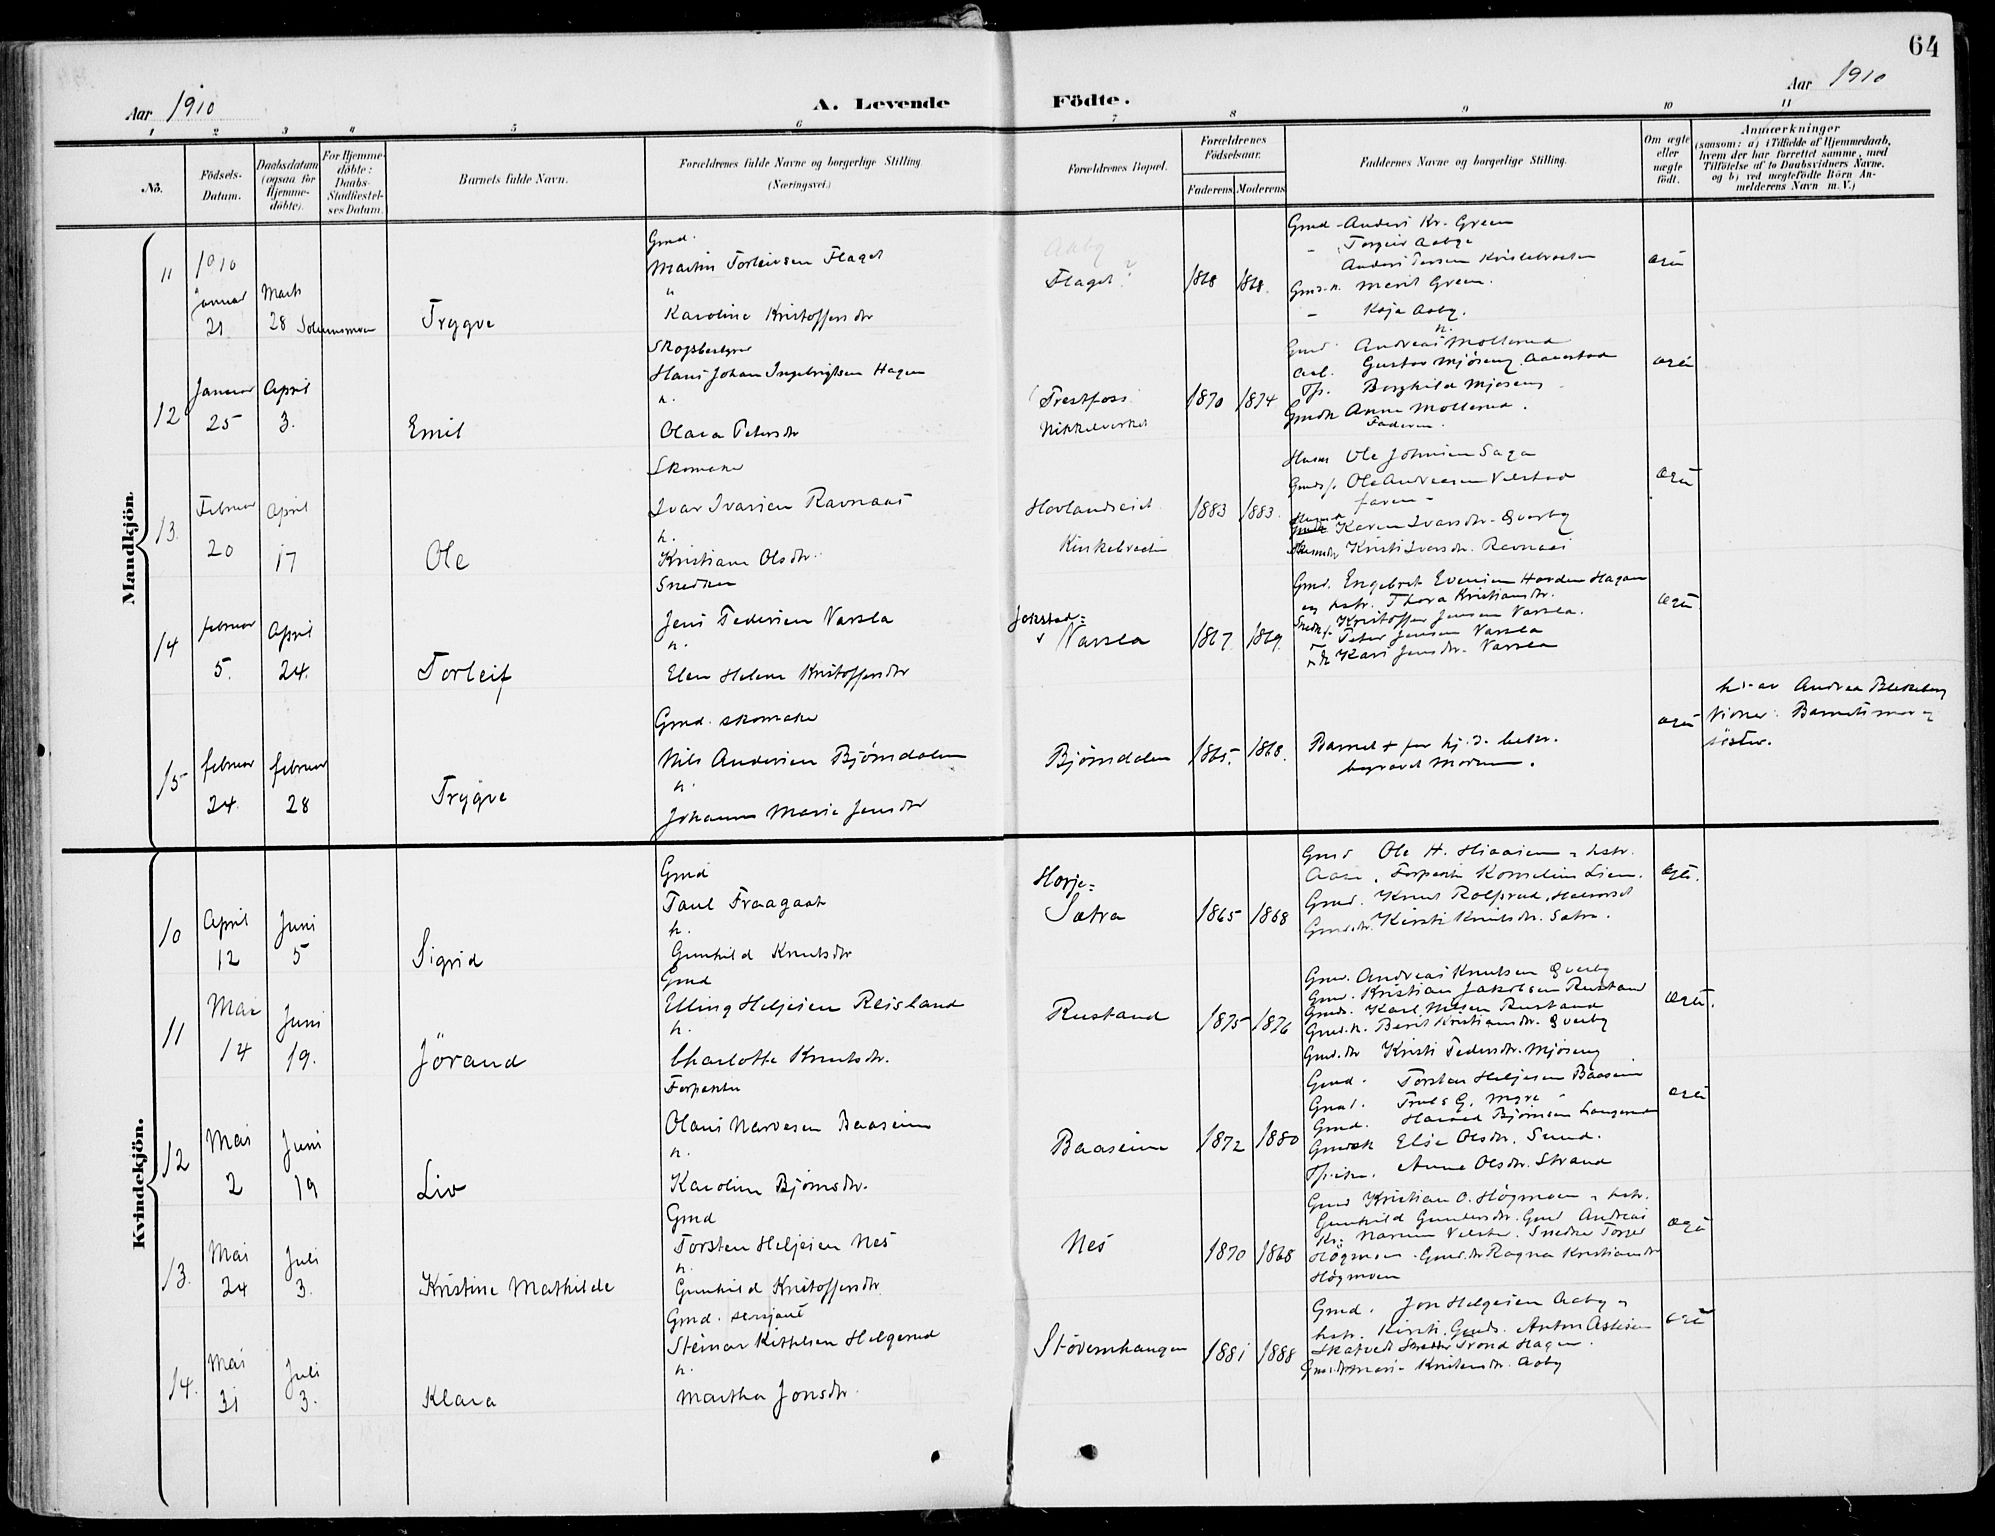 64
Aar 1910
A. Levende
Födte.
Aar 1910
1 2 3 4 5 6 7 8 9 10 11
No.
Födsels-
Datum.
Daabsdatum
(ogsaa for
Hjemme-
döbte).
For Hjemme-
döbte:
Daabs-
Stadfæstel-
ses Datum.
Barnets fulde Navn.
Forældrenes fulde Navne og borgerlige Stilling
(Næringsvei.)
Forældrenes Bopæl.
Forældrenes
Födselsaar.
Faderens
Moderens
Faddernes Navne og borgerlige Stilling.
Om ægte
eller
uægte
födt.
Anmærkninger
(saasom: a) i Tilfælde af Hjemmedaab,
hvem der har forrettet samme, med
Tilföielse af to Daabsvidners Navne.
og b) ved uægtefödte Börn An-
melderens Navn m. V.)
Mandkjön.
11
1910
Januar
21
Marts
28
Trygve
Gmd.
Martin Torleivsen Flaget
h.
Karoline Kristoffersdtr
Aaby
Flaget?
1868
1868.
Gmd. Anders Kr. Green
Torgeir Aabye
Gmd.k. Marit Green.
Kaja Aaby.
ægte
12
Januar
25
April
3.
Emil
Skogsbestyrer
Hans Johan Ingebrigtsen Hagen
h.
Olava Petersdtr
Trestfoss
Nikkelverket
1870
1874
Gmd. Andreas Mollerud
Gustav Mjøseng
Borghild Mjøseng
Gmdk Anna Mollerud.
Faderen.
ægte
13.
Februar
20
April
17
Ole
Skomaker
Ivar Ivarsen Ravnaas
h.
Kristiane Olsdtr.
Hovlandseiet
1883
1883.
Ole Johnsen Saga
Ole Andreasen Velstad
faren
Karen Ivarsdtr. Gverby
Kristi Ivarsdtr. Ravnaas
ægte
14
februar
5.
April
24.
Torleif
Snedker
Jens Pedersen Varsla
h.
Elen Helene Kristoffersdtr
Jokstad=
Varsla
1867.
1869.
Gmd. Engebret Evensen Horden Hagan
og hstr. Thora Kristiansdtr.
Kristoffer Jensen Varsla.
Peter Jensen Varsla
Kari Jensdtr. Varsla
ægte
15
februar
24.
februar
28
Trygve
Gmd. skomaker
Nils Andersen Bjørndalen
h.
Johanne Marie Jensdtr
Bjørndalen
1865.
1868.
Barnet + før hj. d. bekr.
begravet Modum.
ægte
hj. av Andrea Blekeberg
Vidner: Barnets mor og
søster.
Kvindekjön.
10
April
12
Juni
5
Sigrid
Gmd
Paul Fraagaat
h.
Gunhild Knutsdtr
Horje=
Sætra
1865
1868
Gmd Ole H. Hiaasen og hstr.
Aase, Forpagter Kornelius Lien.
Gmd. Knut Rolfsrud,
Gmd.dtr. Kirsti Knutsdtr. Sætra.
ægte.
11
Mai
14
Juni
19.
Jörand
Gmd
Elling Heljesen Reisland
h.
Charlotte Knutsdtr.
Rustand
1875
1876
Gmd. Andreas Knutsen Gverby
Gmd. Kristian Jakobsen Rustand
Gmds. Karl Nilsen Rustand
Gmd.k. Berit Kristiansdtr. Gverby
Gmd.dtr Kristi Pedersdtr. Mjøseng
ægte.
12
Mai
2
Juni
19
Liv
Forpakter
Olaus Narvesen Baaseim
h.
Karoline Bjørnsdtr.
Baaseim
1872
1880
Gmd. Torsten Heljesen Baaseim
Gmd. Truls G. Myre
Gmd. Halvard Bjørnsen Langerud
Else Olsdtr. Sund.
Anne Olsdtr. Strand
ægte
13.
Mai
24
Juli
3.
Kristine Mathilde
Gmd
Torsten Heljesen Nes
h.
Gunhild Kristoffersdtr.
Nes
1870
1868
Gmd Kristian O. Høgmoen og hstr.
Gunhild Gundersdtr. Gmd Andreas
Høgmoen. Gmd.dtr Ragna Kristiansdtr
Høgmoen
ægte
14.
Mai
31
Juli
3.
Klara
Gmd. sersjant
Steinar Kittelsen Helgerud
h.
Martha Jonsdtr.
Støvernhaugen
1881
1888
Gmd. Jon Helgesen Aaby og
hstr. Kirsti. Gmds. Anton Aslesen
Skatvedt Snedker Trond Hagen.
Marie Knutsdtr. Aaby
ægte